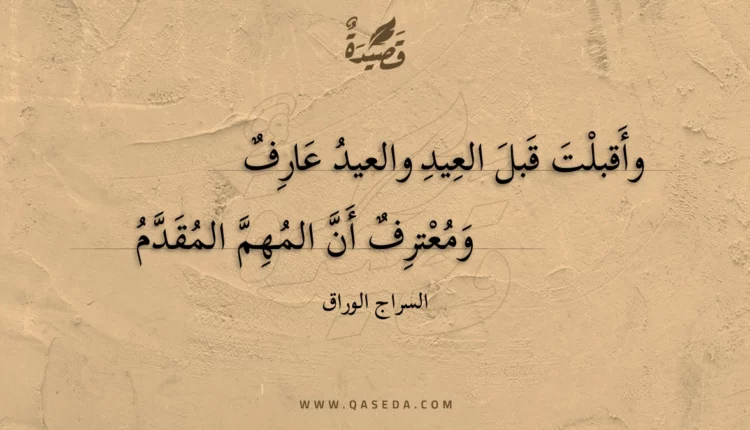 قَصِيْدَةٌ
وأَقبلْتَ قَبلَ العِيدِ والعيدُ عَارِفٌ
وَمُعْترِفٌ أَنَّ المُهِمَّ المُقَدَّمُ
السراج الوراق
WWW.QASEDA.COM